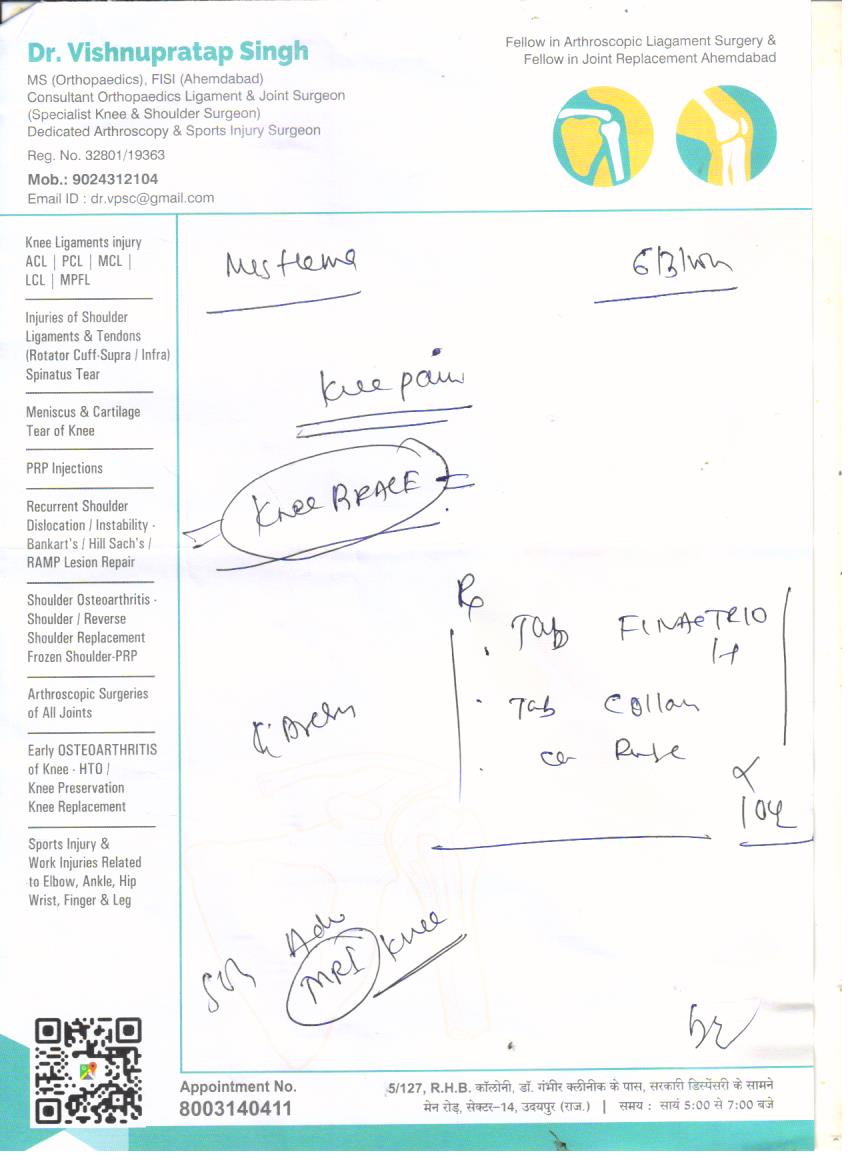 Dr. Vishnupratap Singh
MS (Orthopaedics), FISI (Ahemdabad)
Consultant Orthopaedics Ligament & Joint Surgeon
(Specialist Knee & Shoulder Surgeon)
Dedicated Arthroscopy & Sports Injury Surgeon
Reg. No. 32801/19363
Mob.: 9024312104
Email ID : dr.vpsc@gmail.com
Fellow in Arthroscopic Liagament Surgery &
Fellow in Joint Replacement Ahemdabad
Knee Ligaments injury
ACL | PCL | MCL |
LCL | MPFL
Injuries of Shoulder
Ligaments & Tendons
(Rotator Cuff-Supra / Infra)
Spinatus Tear
Meniscus & Cartilage
Tear of Knee
PRP Injections
Recurrent Shoulder
Dislocation / Instability -
Bankart's / Hill Sach's /
RAMP Lesion Repair
Shoulder Osteoarthritis -
Shoulder / Reverse
Shoulder Replacement
Frozen Shoulder-PRP
Arthroscopic Surgeries
of All Joints
Early OSTEOARTHRITIS
of Knee - HTO /
Knee Preservation
Knee Replacement
Sports Injury &
Work Injuries Related
to Elbow, Ankle, Hip
Wrist, Finger & Leg
Knee pain
Knee BRACE
Rx
Tab
Tab
Adv
MRI Knee
Appointment No.
8003140411
5/127, R.H.B. कॉलोनी, डॉ. गंभीर क्लीनीक के पास, सरकारी डिस्पेंसरी के सामने
मेन रोड़, सेक्टर-14, उदयपुर (राज.) | समय : सायं 5:00 से 7:00 बजे